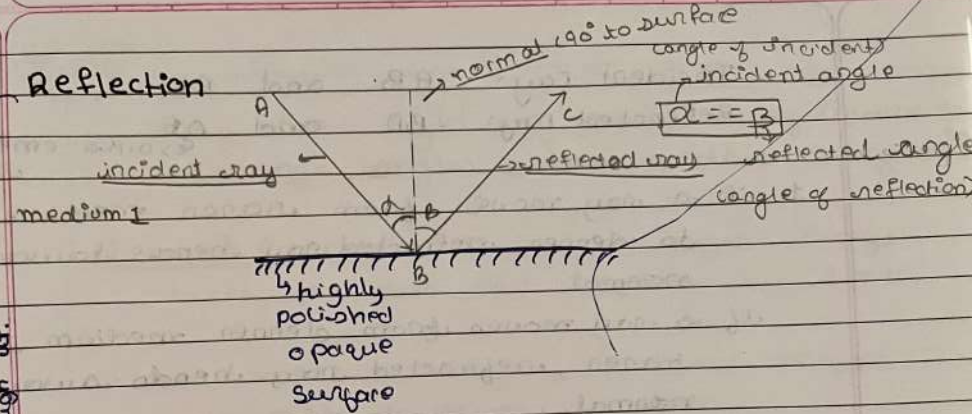 normal (90° to surface
(angle of incident)
Reflection
incident angle
A
C
α = = β
incident ray
reflected ray
reflected angle
(angle of reflection)
medium 1
α
β
B
highly
polished
opaque
surface